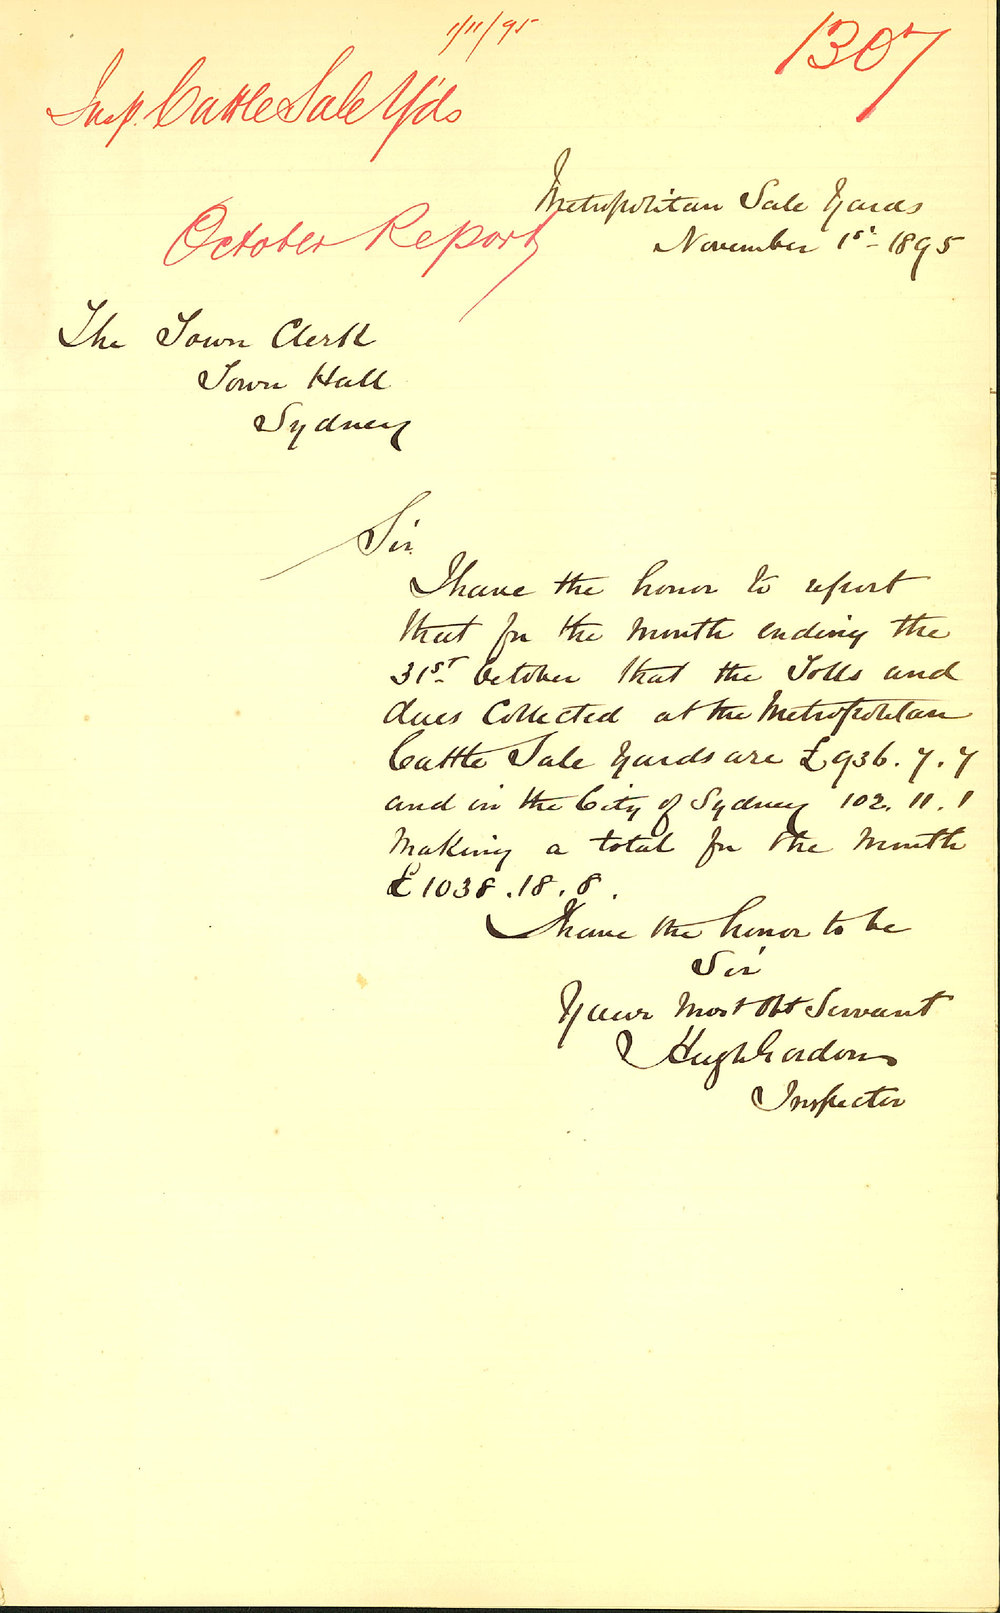 1/11/95
1307
Insp. Cattle Sale Yds
October Report
Metropolitan Sale Yards
November 1st 1895
The Town Clerk
Town Hall
Sydney
Sir
I have the honor to report
that for the month ending the
31st October that the Tolls and
dues Collected at the Metropolitan
Cattle Sale Yards are £936.7.7
and in the City of Sydney 102.11.1
Making a total for the Month
£1038.18.8.
I have the honor to be
Sir
Your Most Obt Servant
Hugh Gordon
Inspector